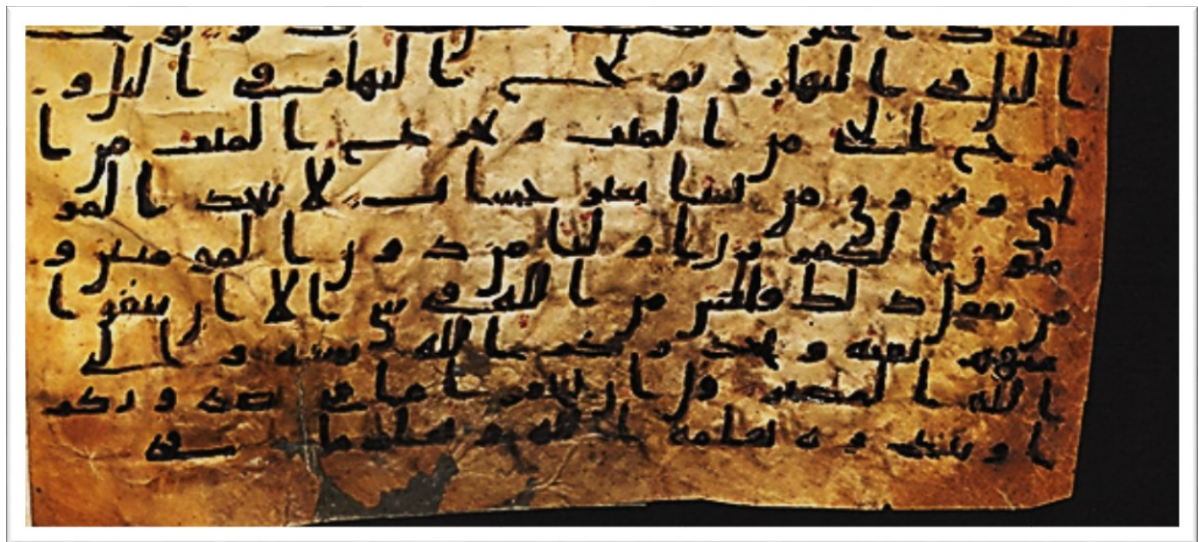 اليل في النهار وتولج النهار في اليل و
تخرج الحي من الميت وتخرج الميت من ا
لحي وترزق من تشا بغير حساب لا يتخذ المو
منون الكفرين اوليا من دون المومنين و
من يفعل ذلك فليس من الله في شي الا ان تتقوا
منهم تقيه ويحذركم الله نفسه والى
الله المصير قل ان تخفوا ما في صدوركم
او تبدوه يعلمه الله ويعلم ما في